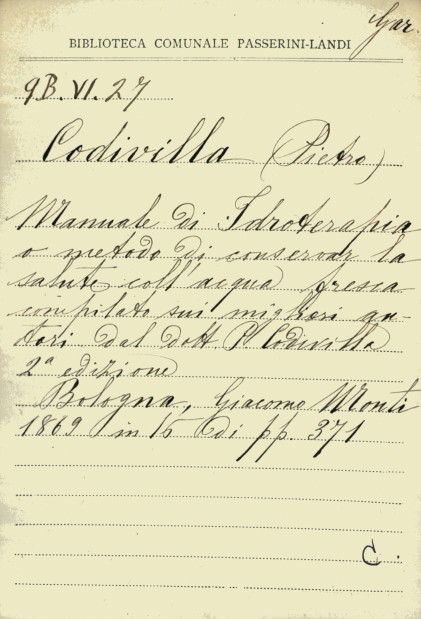 Gar.
BIBLIOTECA COMUNALE PASSERINI-LANDI
9B.VI.27
Codivilla (Pietro)
Manuale di Idroterapia
o metodo di conservar la
salute coll'acqua fresca
compilato sui migliori au-
tori dal dott. P. Codivilla
2ª edizione
Bologna, Giacomo Monti
1869 in 16 di pp. 371
C.